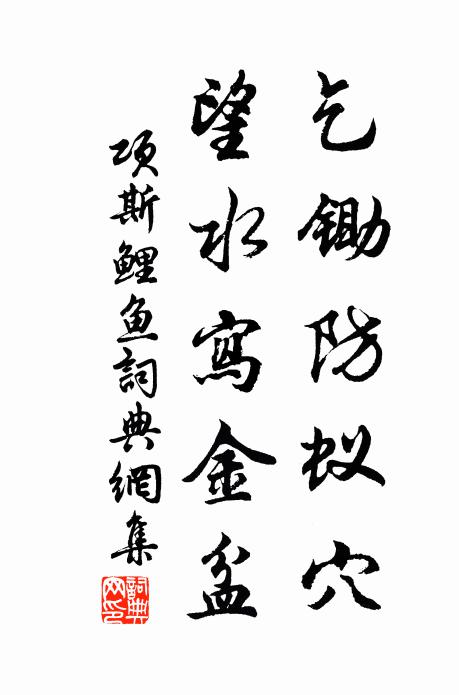 乞锄防蚁穴
望水寫金盆
项斯鲤鱼詞典網集
詞典网印